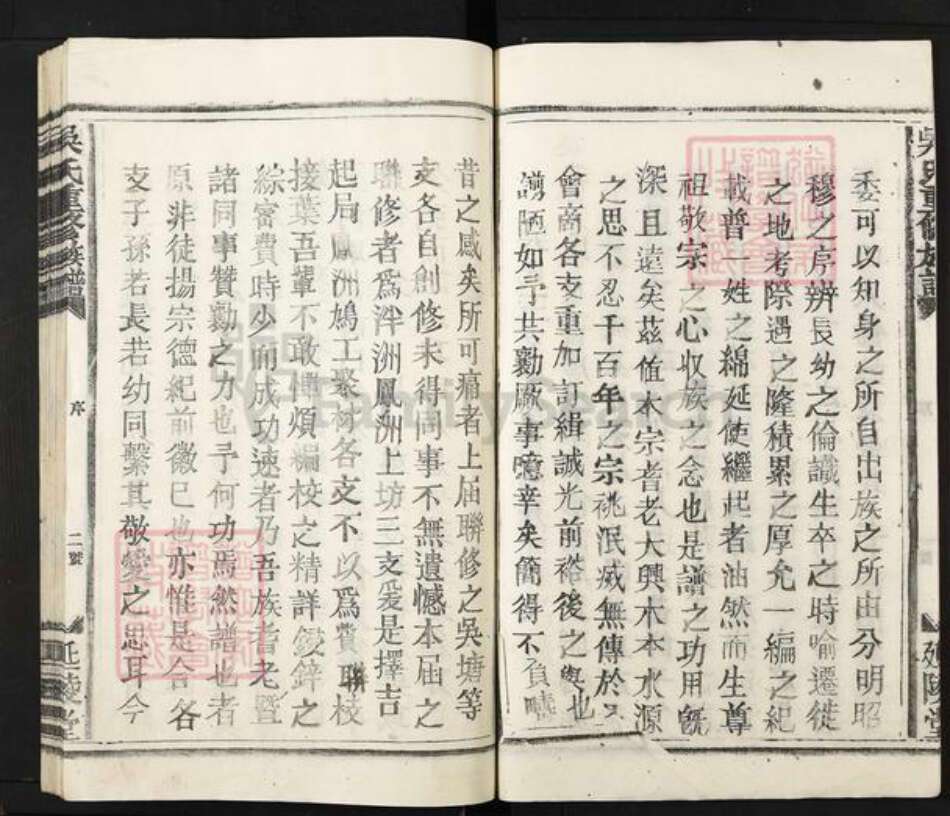 委可以知身之所自出族之所由分明昭
穆之序辨長幼之倫識生卒之時喻遷徙
之地考際遇之隆積累之厚允一編之紀
載普一姓之綿延使繼起者油然而生尊
祖敬宗之心收族之念也是譜之功用旣
深且遠矣茲值本宗耆老大興木本水源
之思不忍千百年之宗祧泯滅無傳於
會商各支重加訂緝誠光前裕後之舉也
謭陋如予共勷厥事噫幸矣簡得不負曉
昔之感矣所可痛者上届聯修之吳塘等
支各自創修未得同事不無遺憾本届之
聯修者爲泮洲鳳洲上坊三支爰是擇吉
起局鳳洲鳩工聚材各支不以爲費聯校
接葉吾輩不敢憚煩編校之精詳鋟鋅之
綜密費時少而成功速者乃吾族耆老暨
諸同事贊勷之力也予何功焉然譜也者
原非徒揚宗德紀前徽已也亦惟是合各
支子孫若長若幼同繫其敬愛之忠耳今
吳氏重修族譜
序
二號
延陵堂
吳氏重修族譜
延陵堂
FamilySearch